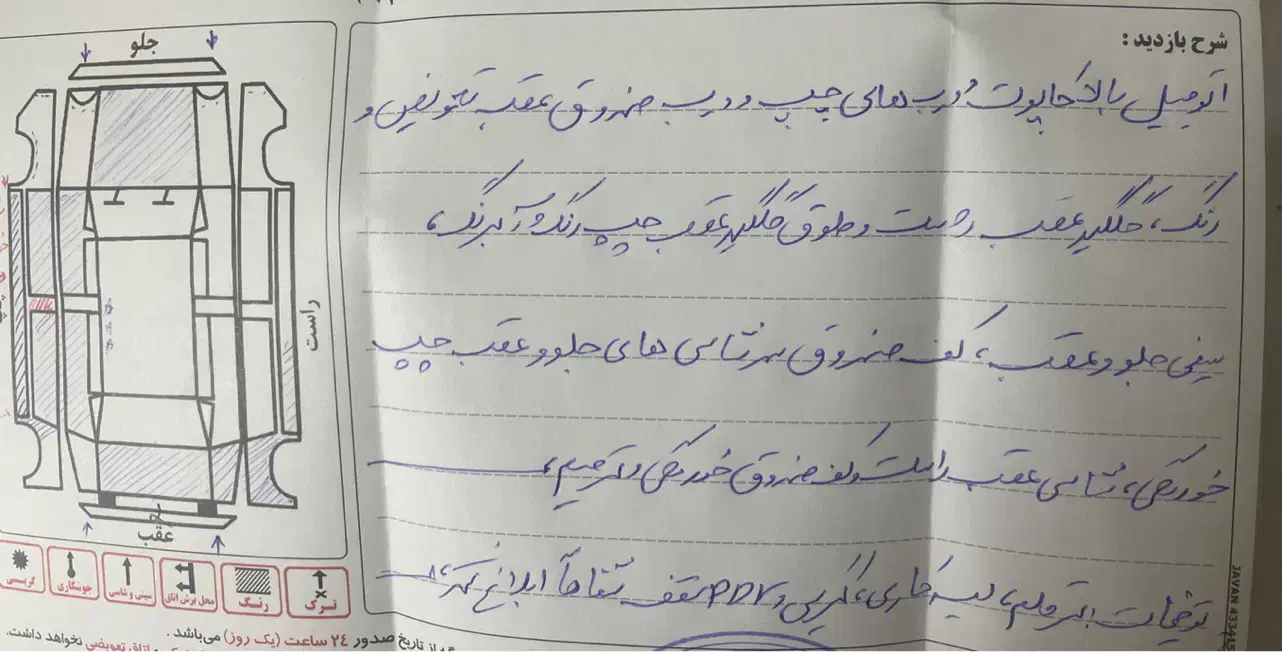 جلو
راست
عقب
ترک
رنگ
محل برش اتاق
سینی و شاسی
جوشکاری
گریسی
شرح بازدید :
اتومبیل بالا کاپوت و درب های چپ و درب صندوق عقب تعویض و
رنگ، گلگیر عقب راست و طوق گلگیر عقب چپ رنگ و آبرنگ،
سینی جلو و عقب، کف صندوق سرشاسی های جلو و عقب چپ
خوردگی، شاسی عقب راست و کف صندوق خوردگی و ترمیم،
توضیحات بهتر قلم، لیسه کاری، گریس و PDR سقف شفاهاً ابلاغ گردید
از تاریخ صدور ۲۴ ساعت (یک روز) می‌باشد .
اتاق تعویضی نخواهد داشت.
JAVAN 43341